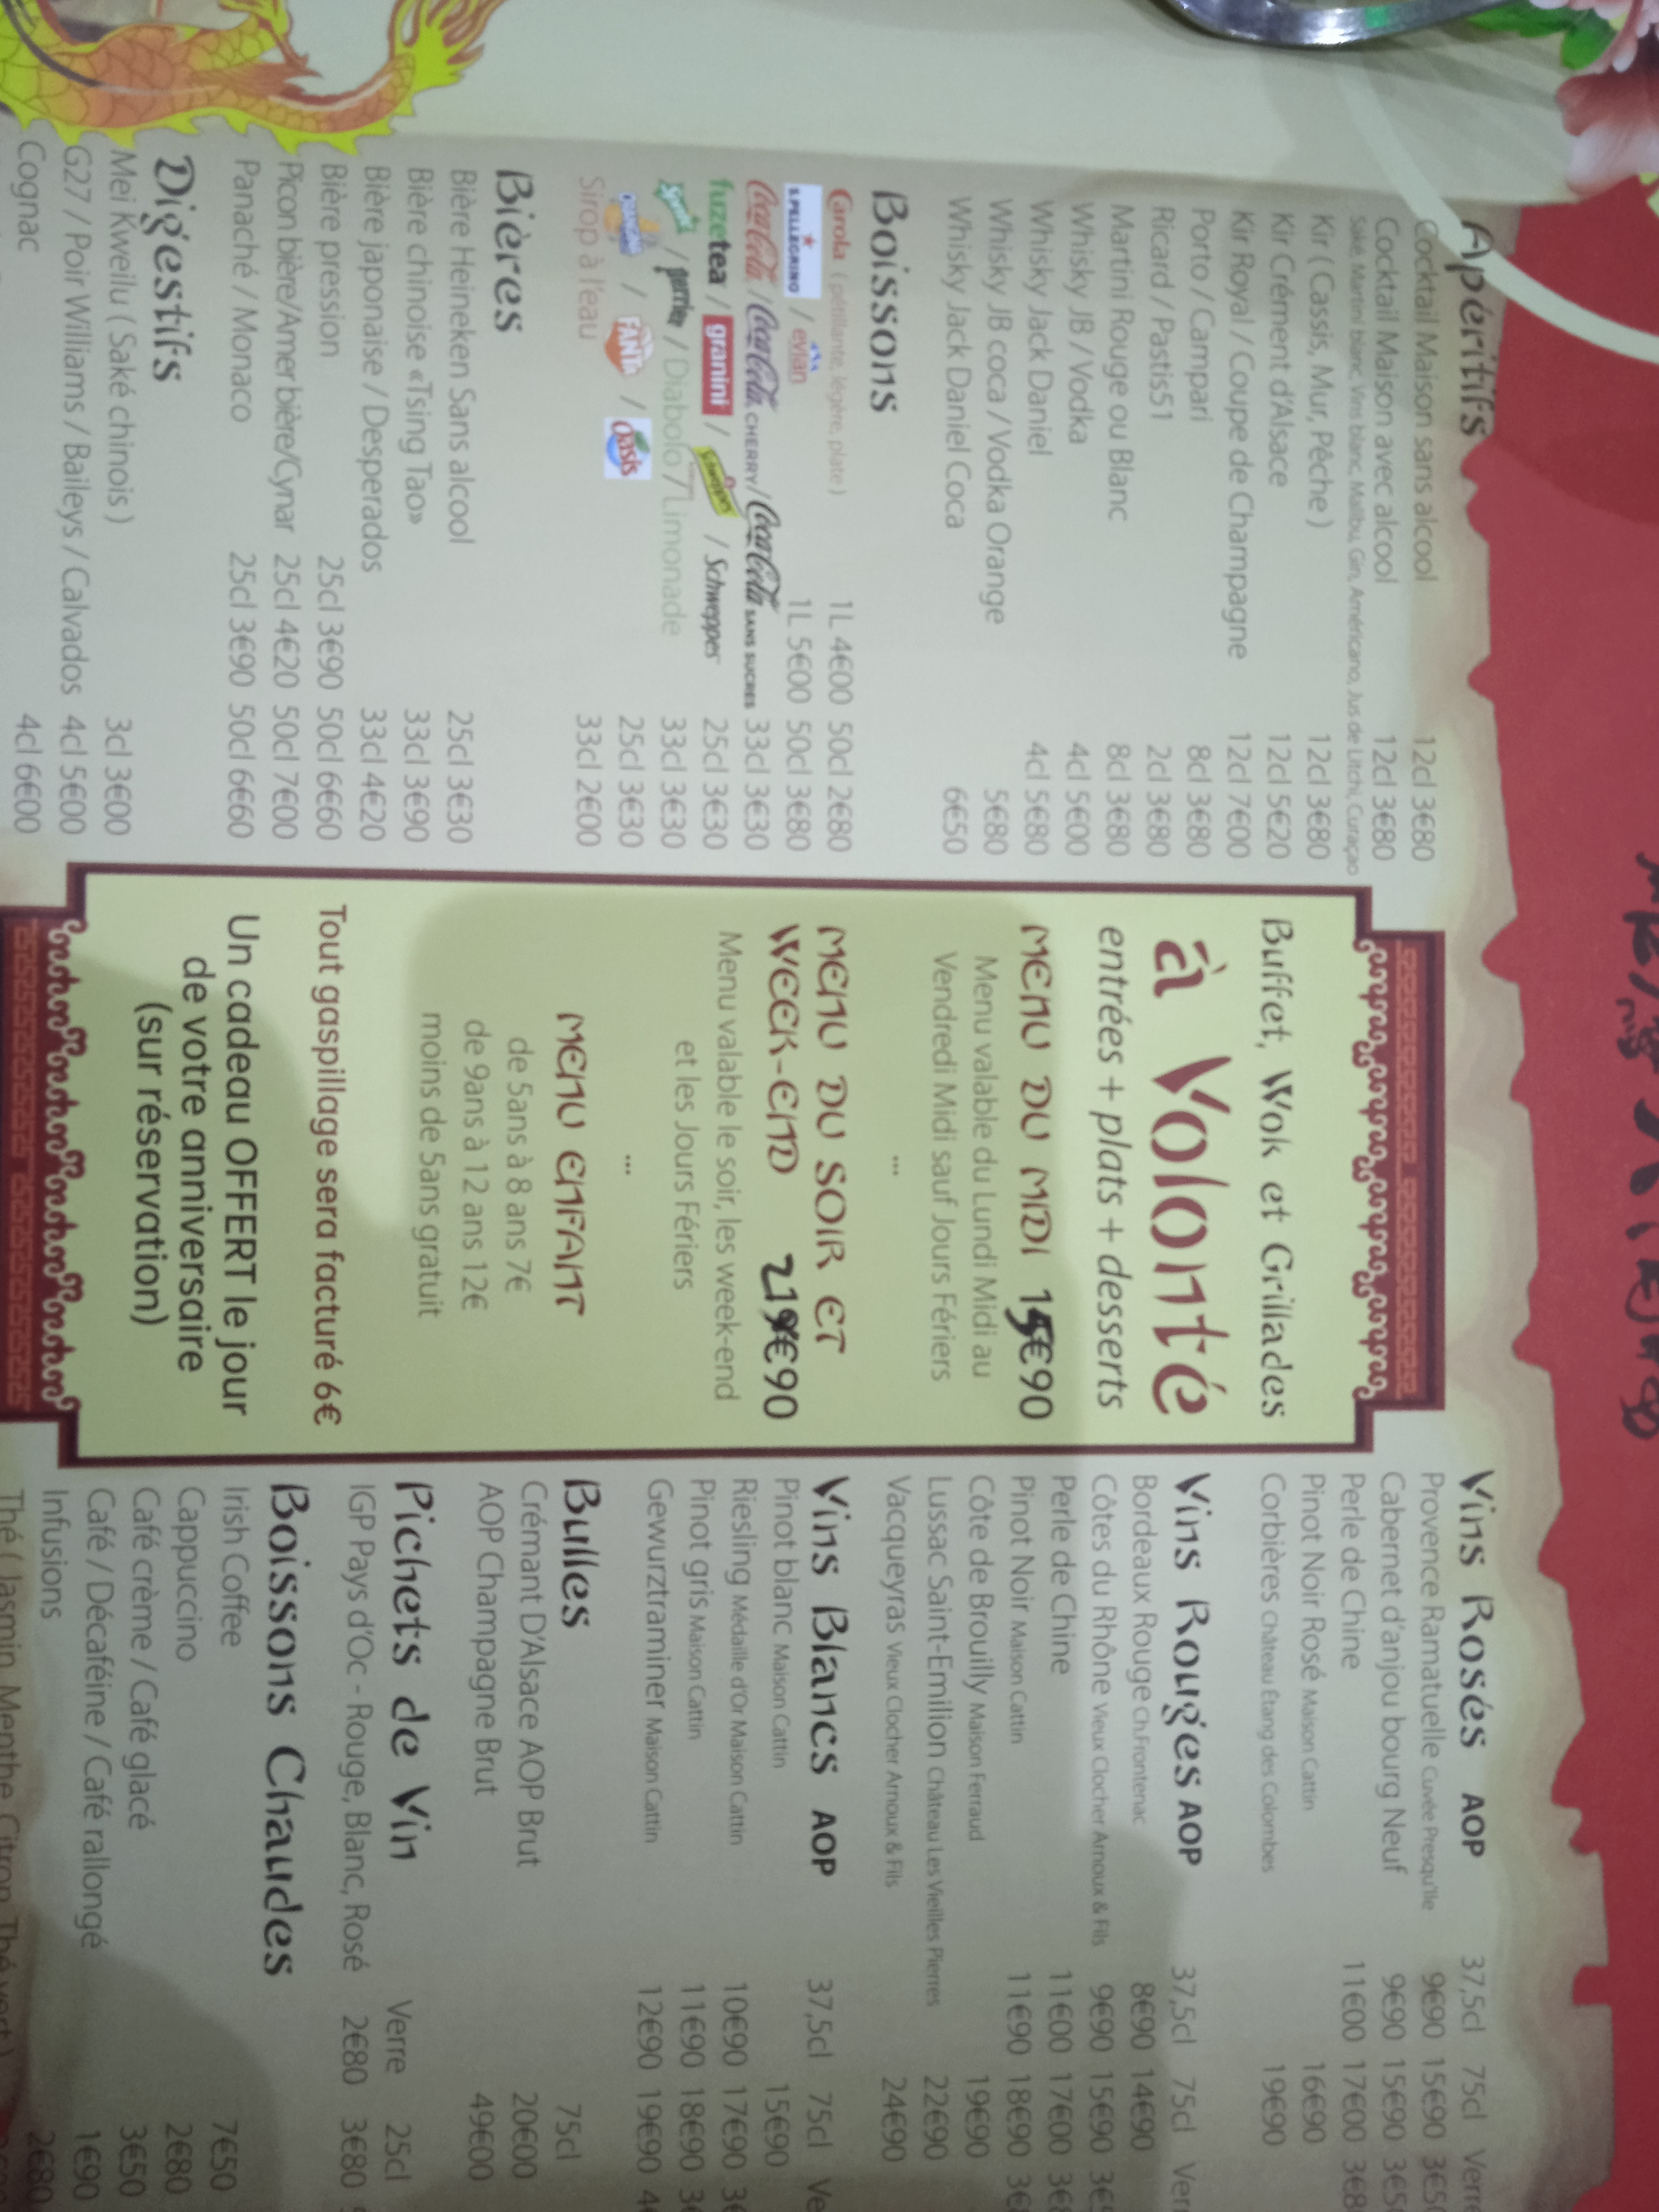 Apéritifs
Cocktail Maison sans alcool 12cl 3€80
Cocktail Maison avec alcool 12cl 3€80
Saké, Martini blanc, Vins blanc, Malibu, Gin, Américano, Jus de Litchi, Curaçao
Kir ( Cassis, Mur, Pêche ) 12cl 3€80
Kir Crément d'Alsace 12cl 5€20
Kir Royal / Coupe de Champagne 12cl 7€00
Porto / Campari 8cl 3€80
Ricard / Pastis51 2cl 3€80
Martini Rouge ou Blanc 8cl 3€80
Whisky JB / Vodka 4cl 5€00
Whisky Jack Daniel 4cl 5€80
Whisky JB coca / Vodka Orange 5€80
Whisky Jack Daniel Coca 6€50
Boissons
Carola ( pétillante, légère, plate ) 1L 4€00 50cl 2€80
S.PELLEGRINO / evian 1L 5€00 50cl 3€80
Coca-Cola / Coca-Cola CHERRY / Coca-Cola SANS SUCRES 33cl 3€30
fuzetea / granini / Schweppes / Schweppes 25cl 3€30
Sprite / perrier / Diabolo / Limonade 33cl 3€30
ORANGINA / FANTA / Oasis 25cl 3€30
Sirop à l'eau 33cl 2€00
Bières
Bière Heineken Sans alcool 25cl 3€30
Bière chinoise «Tsing Tao» 33cl 3€90
Bière japonaise / Desperados 33cl 4€20
Bière pression 25cl 3€90 50cl 6€60
Picon bière/Amer bière/Cynar 25cl 4€20 50cl 7€00
Panaché / Monaco 25cl 3€90 50cl 6€60
Digestifs
Mei Kweilu ( Saké chinois ) 3cl 3€00
G27 / Poir Williams / Baileys / Calvados 4cl 5€00
Cognac 4cl 6€00
Buffet, Wok et Grillades
à Volonté
entrées + plats + desserts
MENU DU MIDI 15€90
Menu valable du Lundi Midi au
Vendredi Midi sauf Jours Fériers
...
MENU DU SOIR ET
WEEK-END 21€90
Menu valable le soir, les week-end
et les Jours Fériers
...
MENU ENFANT
de 5ans à 8 ans 7€
de 9ans à 12 ans 12€
moins de 5ans gratuit
Tout gaspillage sera facturé 6€
Un cadeau OFFERT le jour
de votre anniversaire
(sur réservation)
Vins Rosés AOP 37,5cl 75cl Verr
Provence Ramatuelle Cuvée Presqu'île 9€90 15€90 3€5
Cabernet d'anjou bourg Neuf 9€90 15€90 3€5
Perle de Chine 11€00 17€00 3€8
Pinot Noir Rosé Maison Cattin 16€90
Corbières Château Étang des Colombes 19€90
Vins Rouges AOP 37,5cl 75cl Verr
Bordeaux Rouge Ch.Frontenac 8€90 14€90
Côtes du Rhône Vieux Clocher Arnoux & Fils 9€90 15€90 3€
Perle de Chine 11€00 17€00 3€
Pinot Noir Maison Cattin 11€90 18€90 3€
Côte de Brouilly Maison Ferraud 19€90
Lussac Saint-Emilion Château Les Vieilles Pierres 22€90
Vacqueyras Vieux Clocher Arnoux & Fils 24€90
Vins Blancs AOP 37,5cl 75cl Ve
Pinot blanc Maison Cattin 15€90
Riesling Médaille d'Or Maison Cattin 10€90 17€90 3€
Pinot gris Maison Cattin 11€90 18€90 3€
Gewurztraminer Maison Cattin 12€90 19€90 4
Bulles 75cl
Crémant D'Alsace AOP Brut 20€00
AOP Champagne Brut 49€00
Pichets de Vin Verre 25cl
IGP Pays d'Oc - Rouge, Blanc, Rosé 2€80 3€80
Boissons Chaudes
Irish Coffee 7€50
Cappuccino 2€80
Café crème / Café glacé 3€50
Café / Décaféine / Café rallongé 1€90
Infusions 2€80
Thé ( Jasmin, Menthe, Citron, Thé vert )